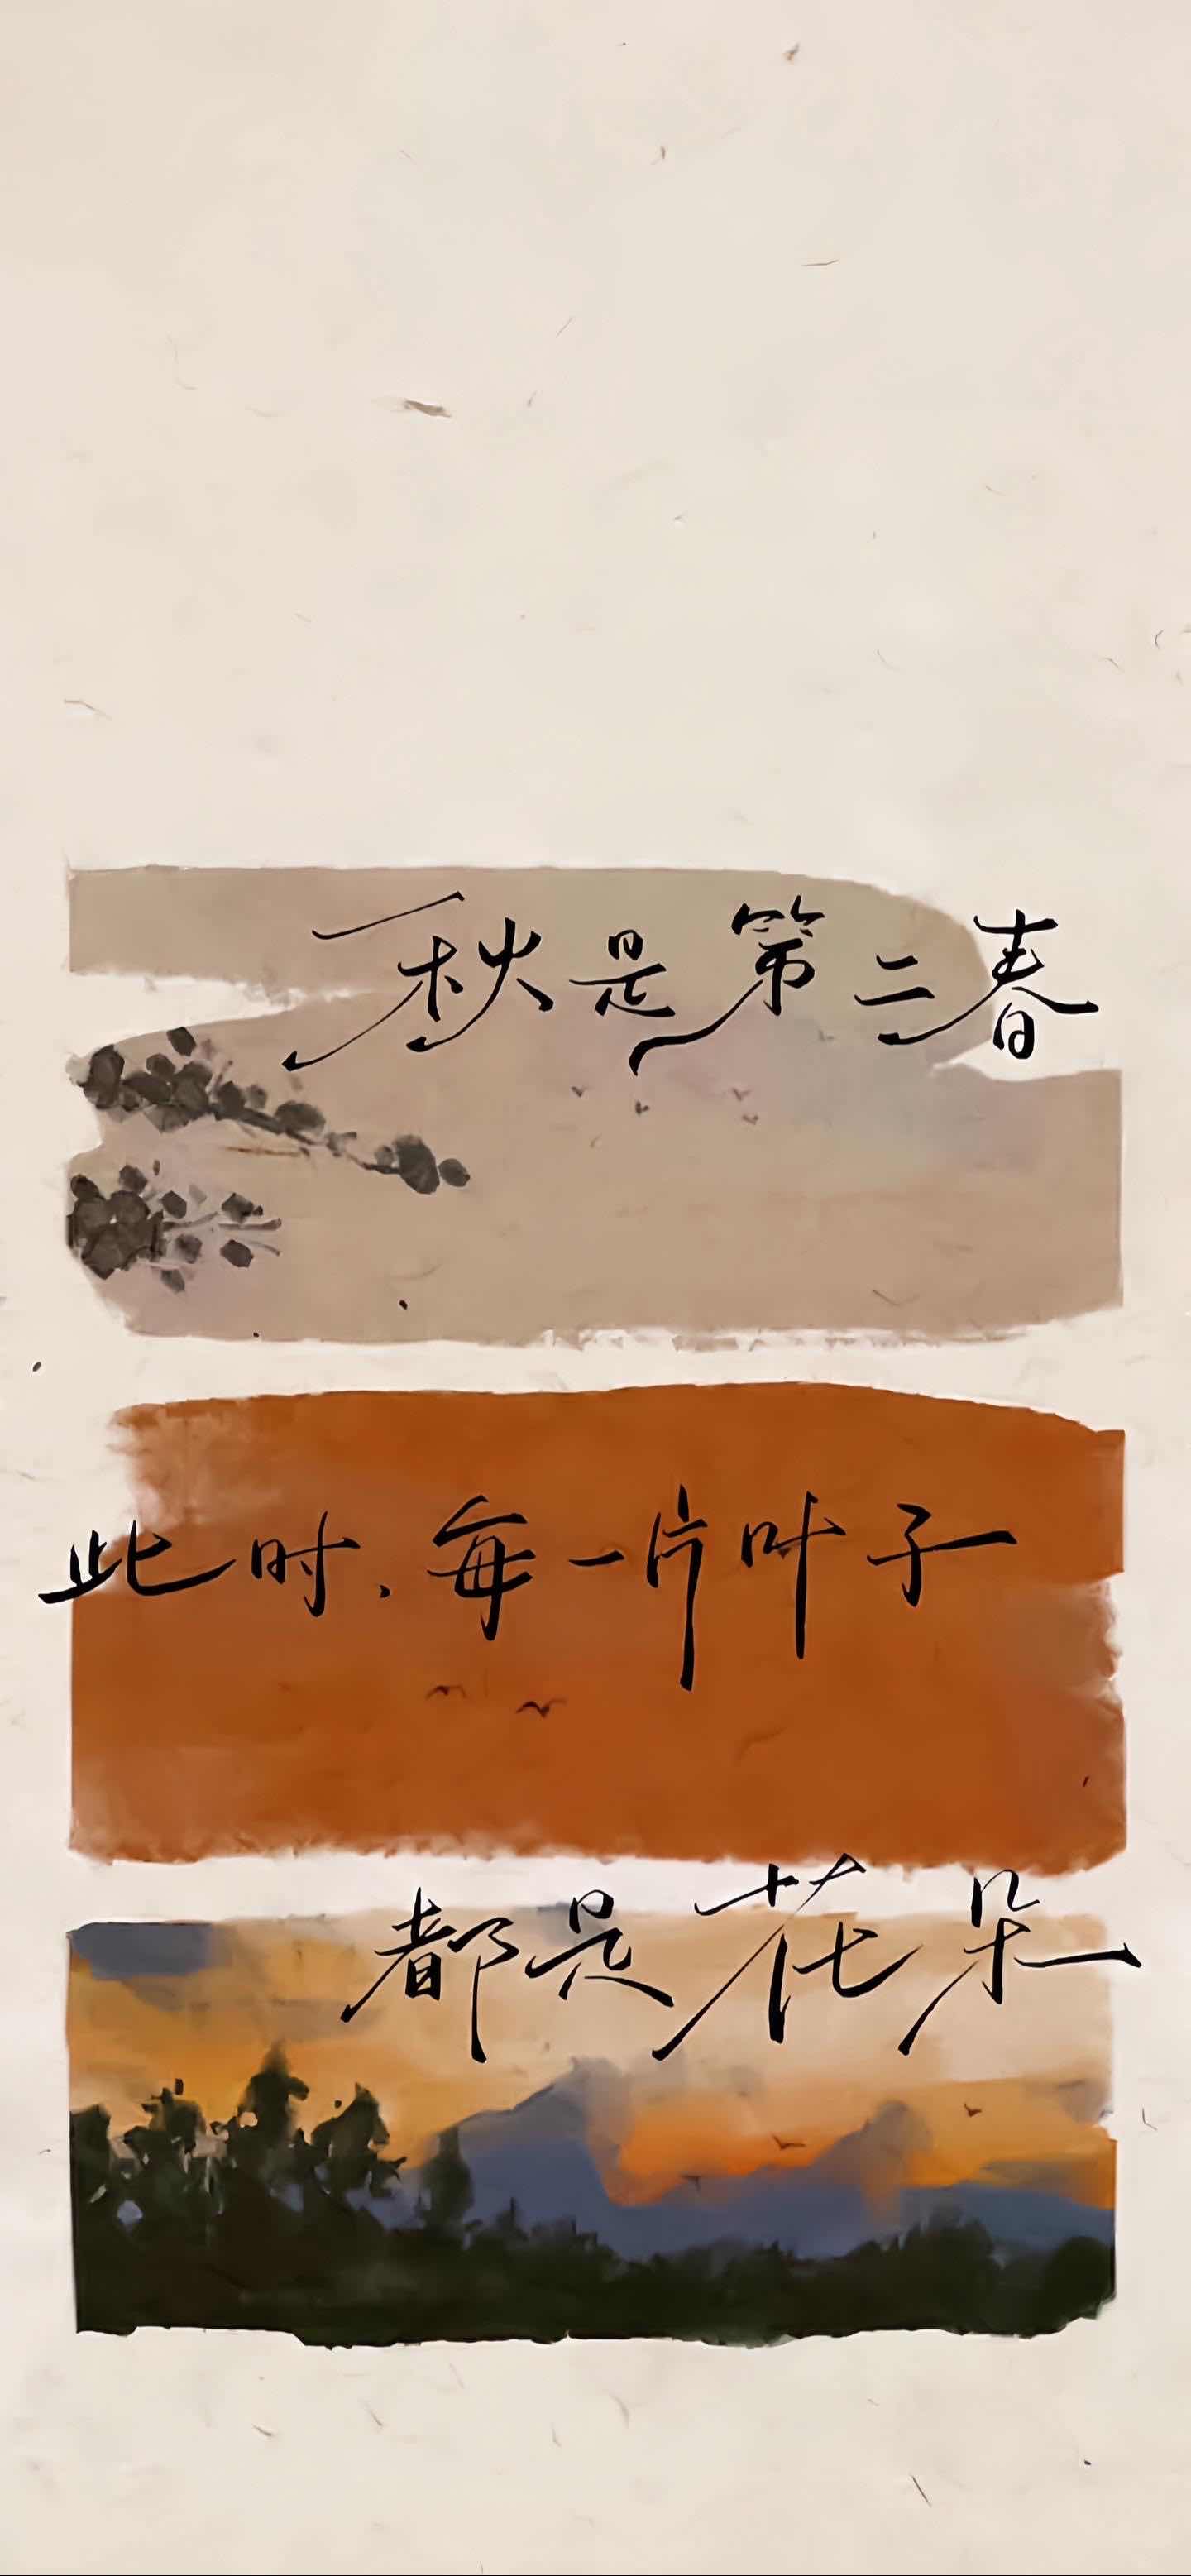 秋是第二春
此时、每一片叶子
都是花朵